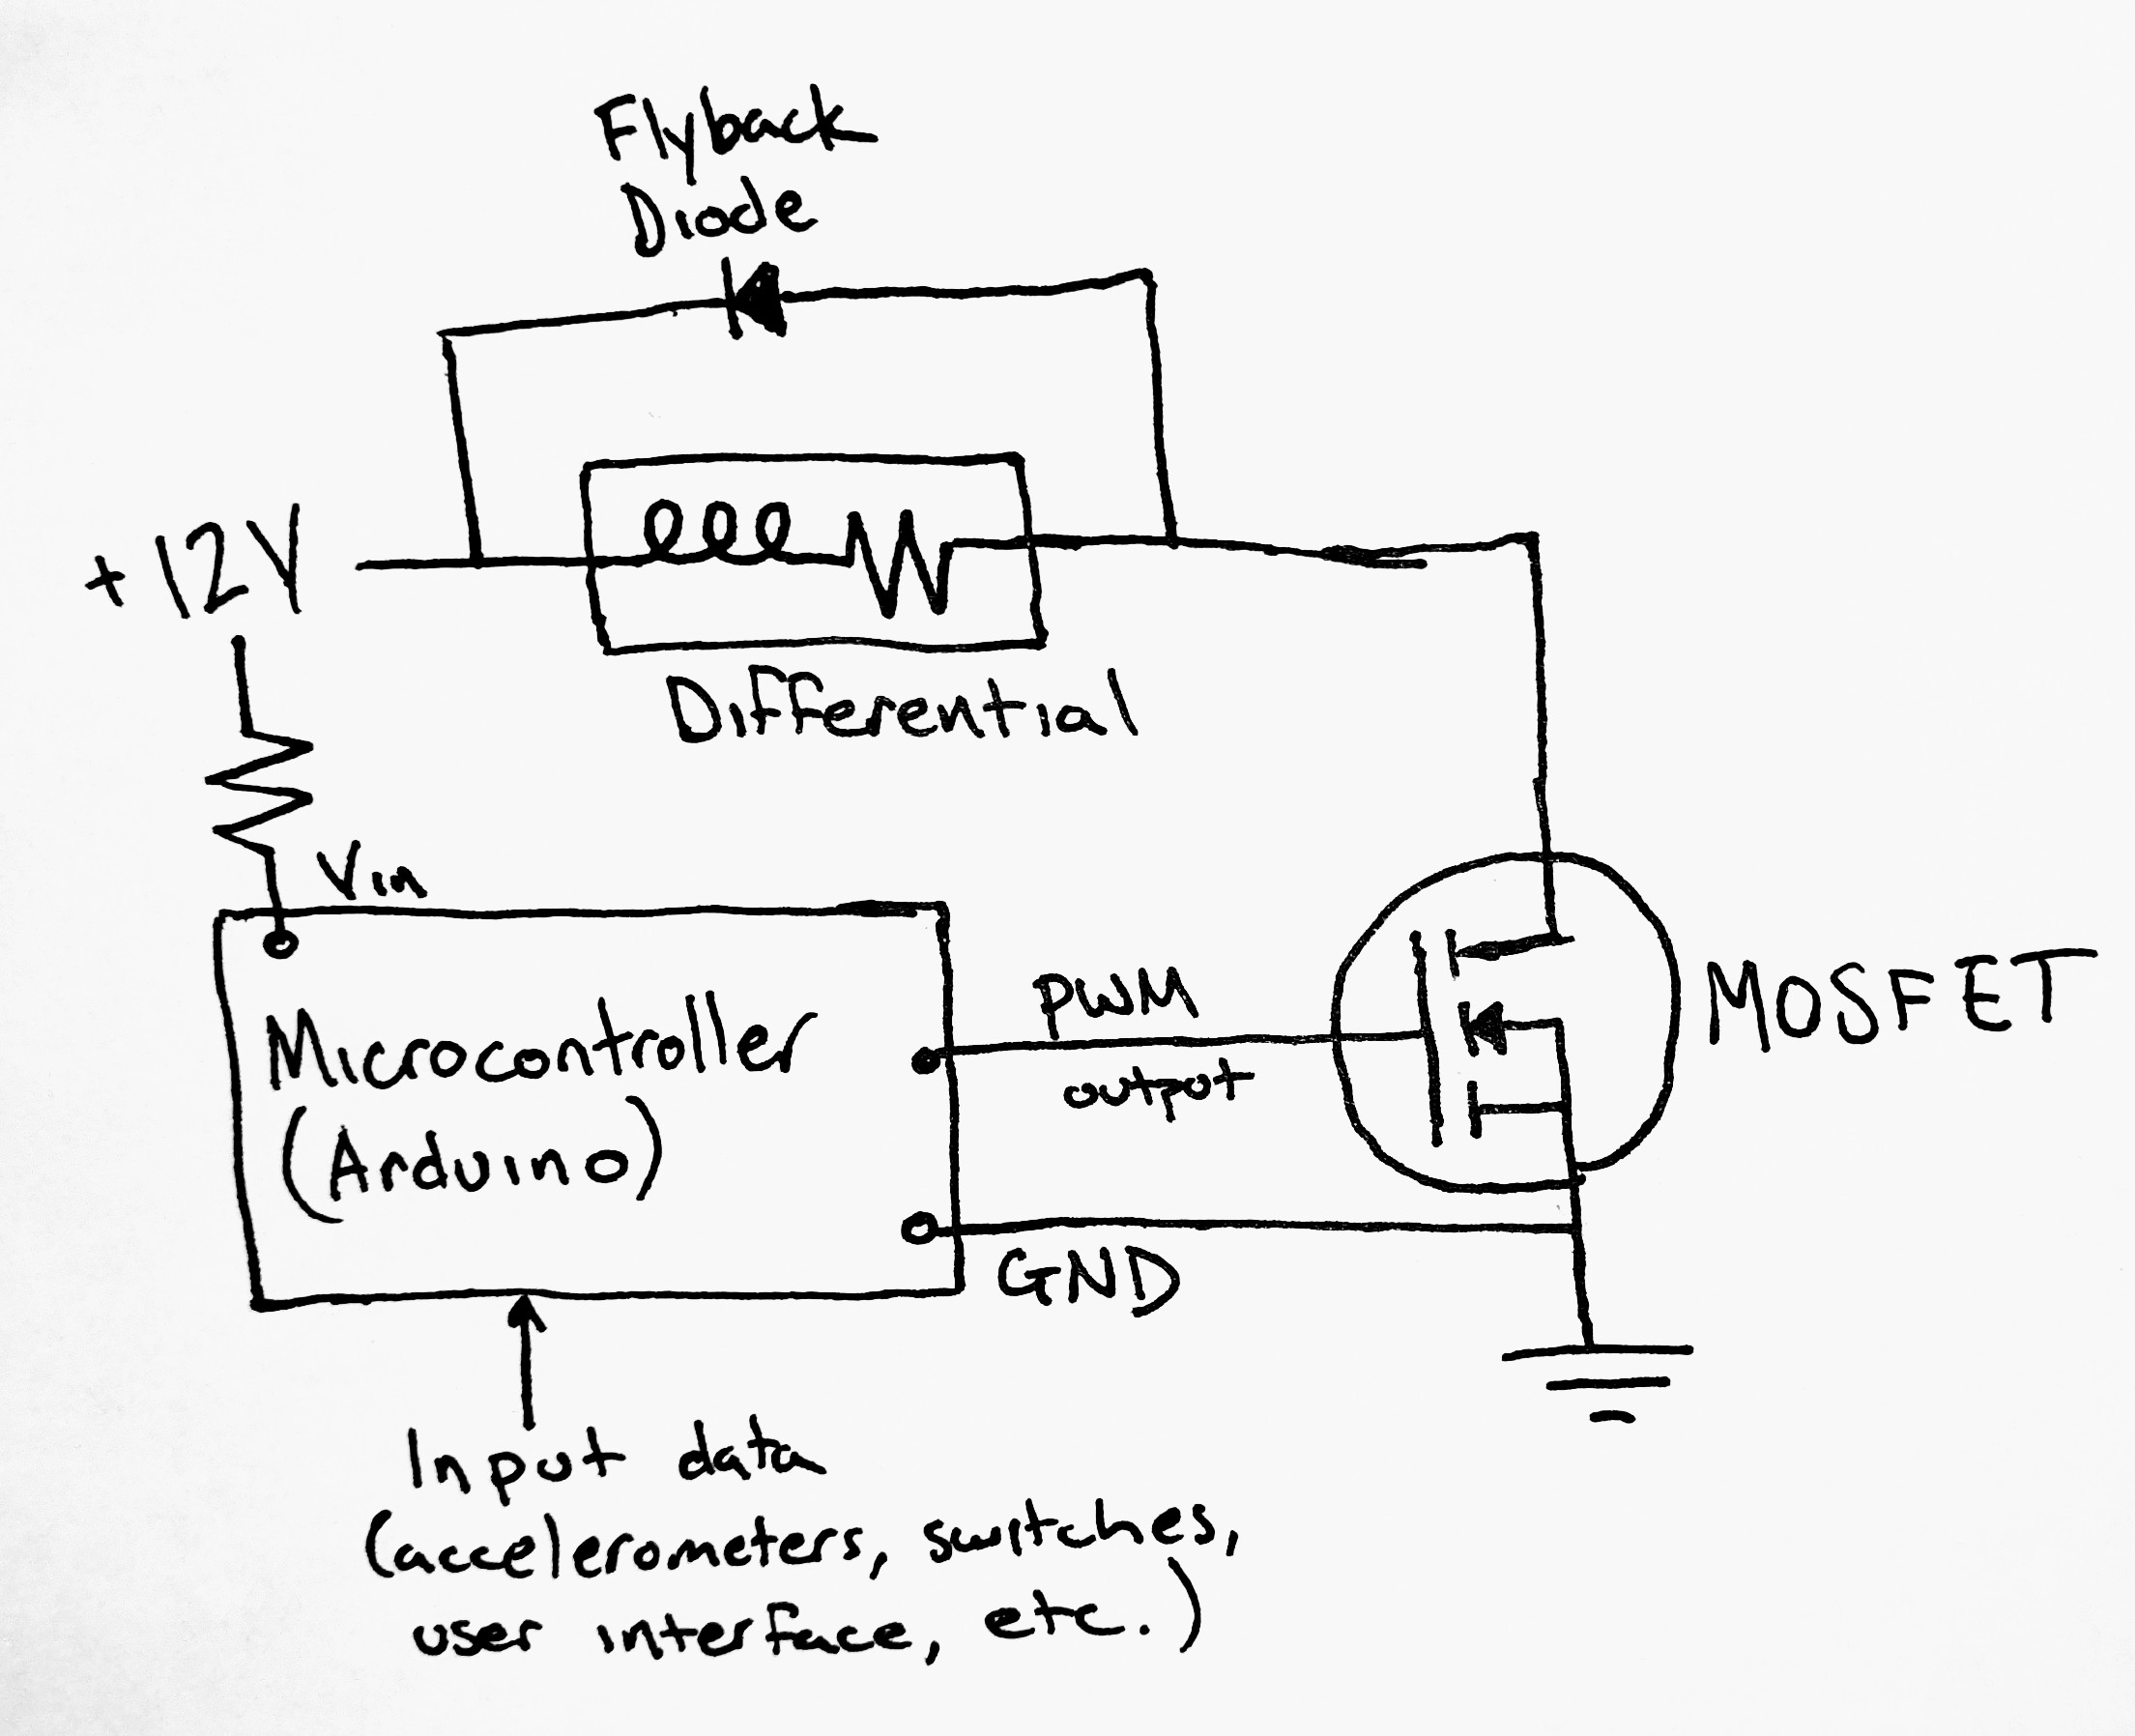 Flyback
Diode
+12V
Differential
Vin
Microcontroller
(Arduino)
PWM
output
MOSFET
GND
Input data
(accelerometers, switches,
user interface, etc.)